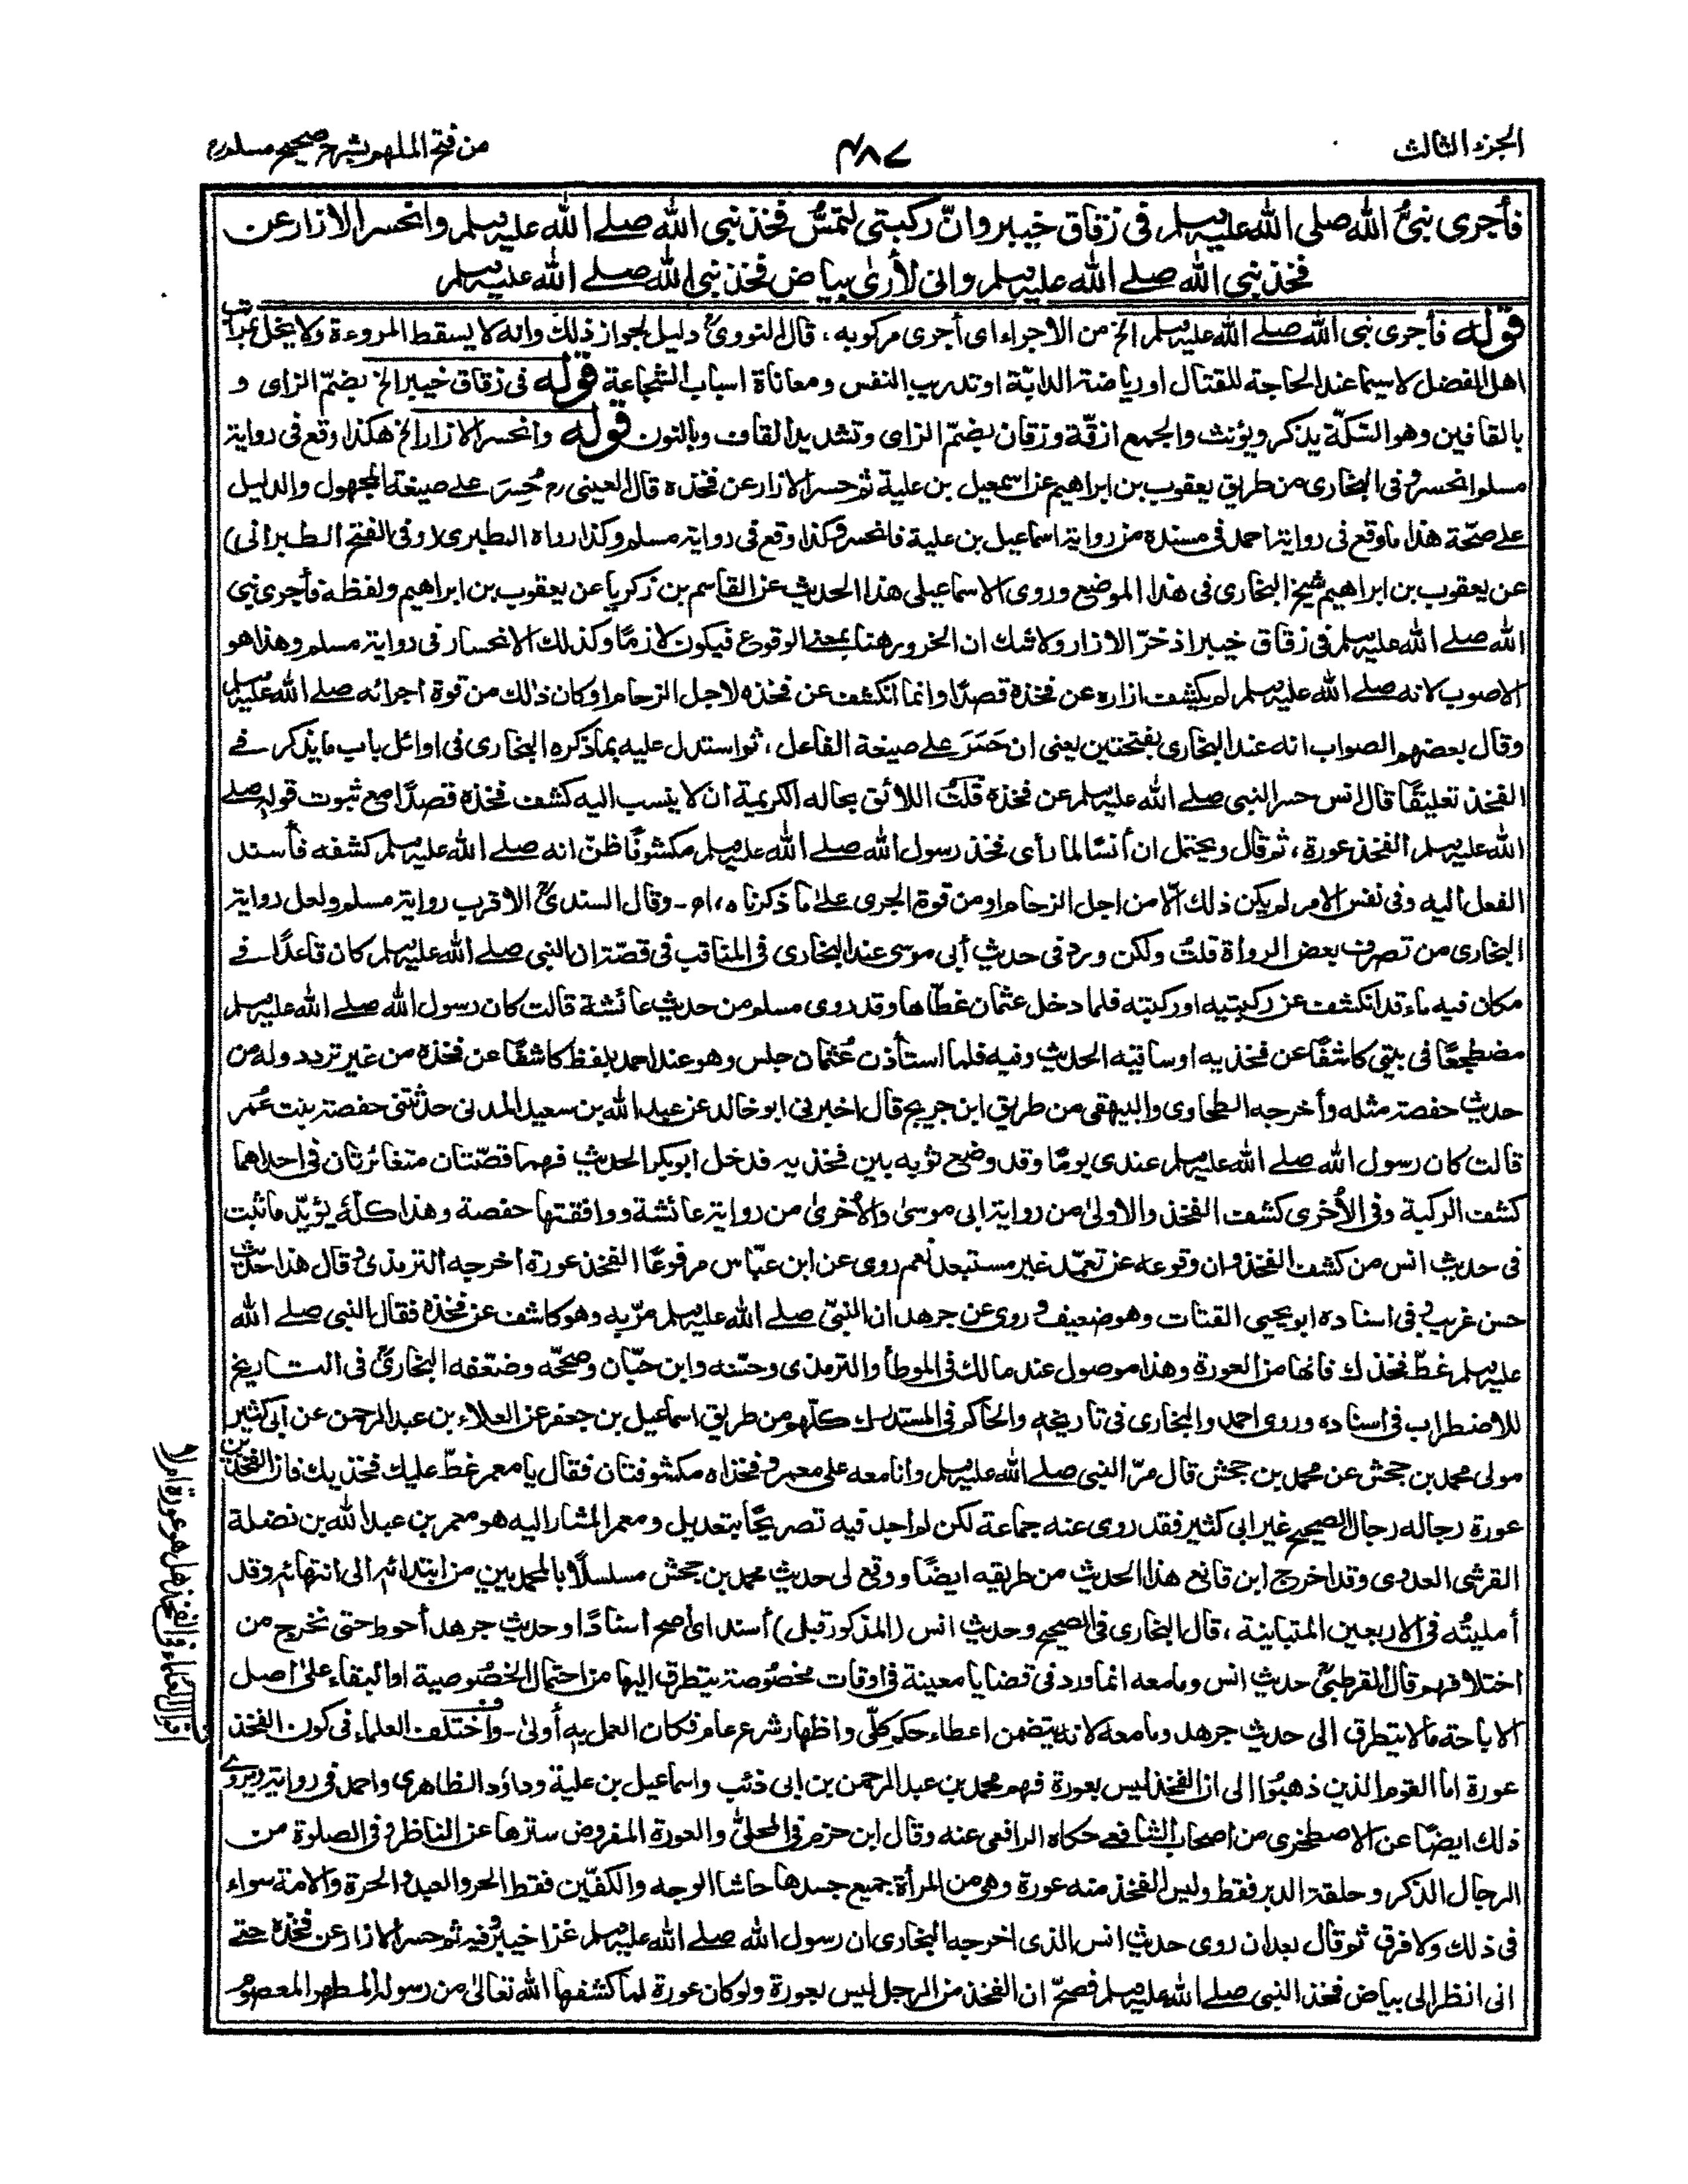 الجزء الثالث
۴۸۷
من فتح الملهم بشرح صحيح مسلم
فأجرى نبىُّ الله صلى الله عليہ وسلم فى زقاق خيبر وانّ ركبتى لتمسُّ فخذ نبى الله صلے الله عليہ وسلم وانحسر الازار عن
فخذ نبى الله صلے الله عليہ وسلم وانى لأرىٰ بياض فخذ نبى الله صلے الله عليہ وسلم
قولہ فأجرى نبى الله صلے الله عليہ وسلم الخ من الاجراء اى أجرى مركوبه، قال النووىؒ دليل لجواز ذلك وانه لا يسقط المروءة ولا يخل بمراتب
اهل الفضل لاسيما عند الحاجة للقتال او رياضة الدابّة او تدريب النفس ومعاناة اسباب الشجاعة قولہ فى زقاق خيبر الخ بضمّ الزاى و
بالقافين وهو السّكّة يذكر ويؤنث والجمع ازقّة وزقان بضمّ الزاى وتشديد القاف وبالنون قولہ وانحسر الازار الخ هكذا وقع فى رواية
مسلم انحسر وفى البخارى من طريق يعقوب بن ابراهيم عن اسمعيل بن علية ثم حسر الازار عن فخذه قال العينى رح حُسِرَ علے صيغة المجهول والدليل
علے صحّة هذا ما وقع فى رواية احمد فى مسنده من رواية اسماعيل بن علية فانحسر وكذا وقع فى رواية مسلم وكذا رواه الطبرى (وفى الفتح الطبرانى)
عن يعقوب بن ابراهيم شيخ البخارى فى هذا الموضع وروى الاسماعيلى هذا الحديث عن القاسم بن زكريا عن يعقوب بن ابراهيم ولفظه فأجرى نبى
الله صلے الله عليہ وسلم فى زقاق خيبر اذ خرّ الازار ولا شك ان الخرور هنا بمعنى الوقوع فيكون لازمًا وكذلك الانحسار فى رواية مسلم وهذا هو
الاصوب لانه صلے الله عليہ وسلم لم يكشف ازاره عن فخذه قصدًا وانما انكشف عن فخذه لاجل الزحام او كان ذلك من قوة اجرائه صلے الله عليہ وسلم
وقال بعضهم الصواب انه عند البخارى بفتحتين يعنى ان حَسَرَ علے صيغة الفاعل، ثم استدل عليه بما ذكره البخارى فى اوائل باب ما يذكر فے
الفخذ تعليقًا قال انس حسر النبى صلے الله عليہ وسلم عن فخذه قلتُ اللائق بحاله الكريمة ان لا ينسب اليه كشف فخذه قصدًا مع ثبوت قوله صلے
الله عليہ وسلم الفخذ عورة، ثم قال ويحتمل ان أنسًا لما رأى فخذ رسول الله صلے الله عليہ وسلم مكشوفًا ظنّ انه صلے الله عليہ وسلم كشفه فأسند
الفعل اليه وفى نفس الامر لم يكن ذلك الّا من اجل الزحام او من قوة الجرى علىٰ ما ذكرناه، اھ۔ وقال السندىؒ الاقرب رواية مسلم ولعل رواية
البخارى من تصرف بعض الرواة قلتُ ولكن ورد فى حديث أبى موسى عند البخارى فى المناقب فى قصّة ان النبى صلے الله عليہ وسلم كان قاعدًا فے
مكان فيه ماء قد انكشف عن ركبتيه او ركبته فلما دخل عثمان غطّاها وقد روى مسلم من حديث عائشة قالت كان رسول الله صلے الله عليہ وسلم
مضطجعًا فى بيتى كاشفًا عن فخذيه او ساقيه الحديث وفيه فلما استأذن عثمان جلس وهو عند احمد بلفظ كاشفًا عن فخذه من غير تردد وله من
حديث حفصة مثله وأخرجه الطحاوى والبيهقى من طريق ابن جريج قال اخبرنى ابو خالد عن عبد الله بن سعيد المدنى حدثتنى حفصة بنت عمر
قالت كان رسول الله صلے الله عليہ وسلم عندى يومًا وقد وضع ثوبه بين فخذيه فدخل ابوبكر الحديث فهما قصّتان متغائرتان فى احداهما
كشف الركبة وفى الأخرى كشف الفخذ والاولىٰ من رواية ابى موسىٰ والأخرىٰ من رواية عائشة ووافقتها حفصة وهذا كلّهٗ يؤيّد ما ثبت
فى حديث انس من كشف الفخذ وان وقوعه عن تعمّد غير مستبعد نعم روى عن ابن عبّاس مرفوعًا الفخذ عورة أخرجه الترمذى وقال هذا حديث
حسن غريب وفى اسناده ابو يحيى القتات وهو ضعيف وروى عن جرهد ان النبىّ صلے الله عليہ وسلم مرّ به وهو كاشف عن فخذه فقال النبى صلے الله
عليہ وسلم غطّ فخذك فانها من العورة وهذا موصول عند مالك فى الموطأ والترمذى وحسّنه وابن حبّان وصحّحه وضعّفه البخارىؒ فى التاريخ
للاضطراب فى اسناده وروى احمد والبخارى فى تاريخه والحاكم فى المستدرك كلّهم من طريق اسماعيل بن جعفر عن العلاء بن عبد الرحمن عن أبى كثير
مولى محمد بن جحش عن محمد بن جحش قال مرّ النبى صلے الله عليہ وسلم وانا معه على معمر وفخذاه مكشوفتان فقال يا معمر غطّ عليك فخذيك فان الفخذين
عورة رجاله رجال الصحيح غير ابى كثير فقد روى عنه جماعة لكن لم اجد فيه تصريحًا بتعديل ومعمر المشار اليه هو معمر بن عبد الله بن نضلة
القرشى العدوى وقد اخرج ابن قانع هذا الحديث من طريقه ايضًا ووقع لى حديث محمد بن جحش مسلسلًا بالمحمدين من ابتدائه الى انتهائه وقد
أمليتُه فى الاربعين المتباينة، قال البخارى فى الصحيح وحديث انس (المذكور قبل) أسند اى أصح اسنادًا وحديث جرهد أحوط حتى نخرج من
اختلافهم قال القرطبىؒ حديث انس وما معه انما ورد فى قضايا معينة فى اوقات مخصوصة يتطرق اليها من احتمال الخصوصية او البقاء علىٰ اصل
الاباحة ما لا يتطرق الى حديث جرهد وما معه لانه يتضمن اعطاء حكم كلّى واظهار شرع عام فكان العمل به أولىٰ۔ واختلف العلماء فى كون الفخذ
عورة اما القوم الذين ذهبُوا الى ان الفخذ ليس بعورة فهم محمد بن عبد الرحمن بن ابى ذئب واسماعيل بن علية وداؤد الظاهرى واحمد فى رواية ويروے
ذلك ايضًا عن الاصطخرى من اصحاب الشافعے حكاه الرافعى عنه وقال ابن حزم فى المحلّٰى والعورة المفروض سترها عن الناظر وفى الصلوة من
الرجال الذكر وحلقة الدبر فقط وليس الفخذ منه عورة وهى من المرأة جميع جسدها حاشا الوجه والكفّين فقط الحر والعبد والحرة والامة سواء
فى ذلك ولا فرق ثم قال بعد ان روى حديث انس الذى اخرجه البخارى ان رسول الله صلے الله عليہ وسلم غزا خيبر وفيه ثم حسر الازار عن فخذه حتے
انى انظر الى بياض فخذ النبى صلے الله عليہ وسلم فصحّ ان الفخذ من الرجل ليس بعورة ولو كان عورة لما كشفها الله تعالىٰ من رسوله المطهر المعصوم
اقوال العلماء فى الفخذ هل هو عورة ام لا